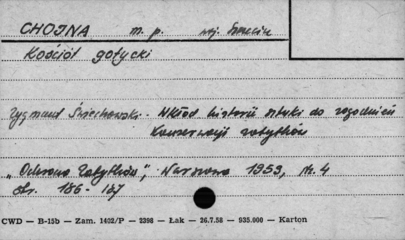 CHOJNA m. p. woj. Szczecin
Kościół gotycki
Zygmunt Świechowski. Wkład historii sztuki do zagadnień
Konserwacji zabytków
„Ochrona Zabytków", Warszawa 1953, Nr. 4
str. 186-187
CWD — B-15b — Zam. 1402/P — 2398 — Łak — 26.7.58 — 935.000 — Karton